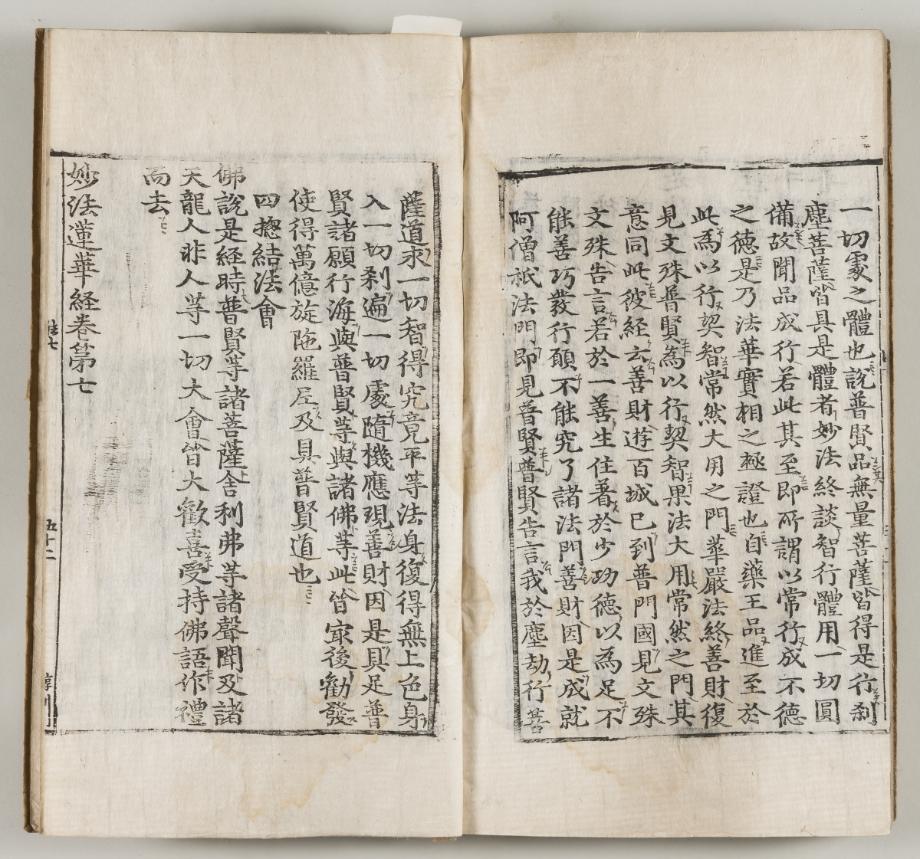 一切處之體也說普賢品無量菩薩皆得是行刹
塵菩薩皆具是體者妙法終談智行體用一切圓
備故聞品成行若此其至即所謂以常行成不德
之德是乃法華實相之極證也自藥王品進至於
此為以行契智常然大用之門華嚴法終善財復
見文殊普賢為以行契智果法大用常然之門其
意同此彼經云善財遊百城已到普門國見文殊
文殊告言若於一善生住着於少功德以為足不
能善巧發行願不能究了諸法門善財因是成就
阿僧祇法門即見普賢普賢告言我於塵劫行菩
薩道求一切智得究竟平等法身復得無上色身
入一切刹遍一切處隨機應現善財因是具足普
賢諸願行海與普賢等與諸佛等此皆㝡後勸發
使得萬億旋陁羅尼及具普賢道也
四摠結法會
佛說是経時普賢等諸菩薩舍利弗等諸聲聞及諸
天龍人非人等一切大會皆大歡喜受持佛語作禮
而去
妙法蓮華経卷第七
五十二